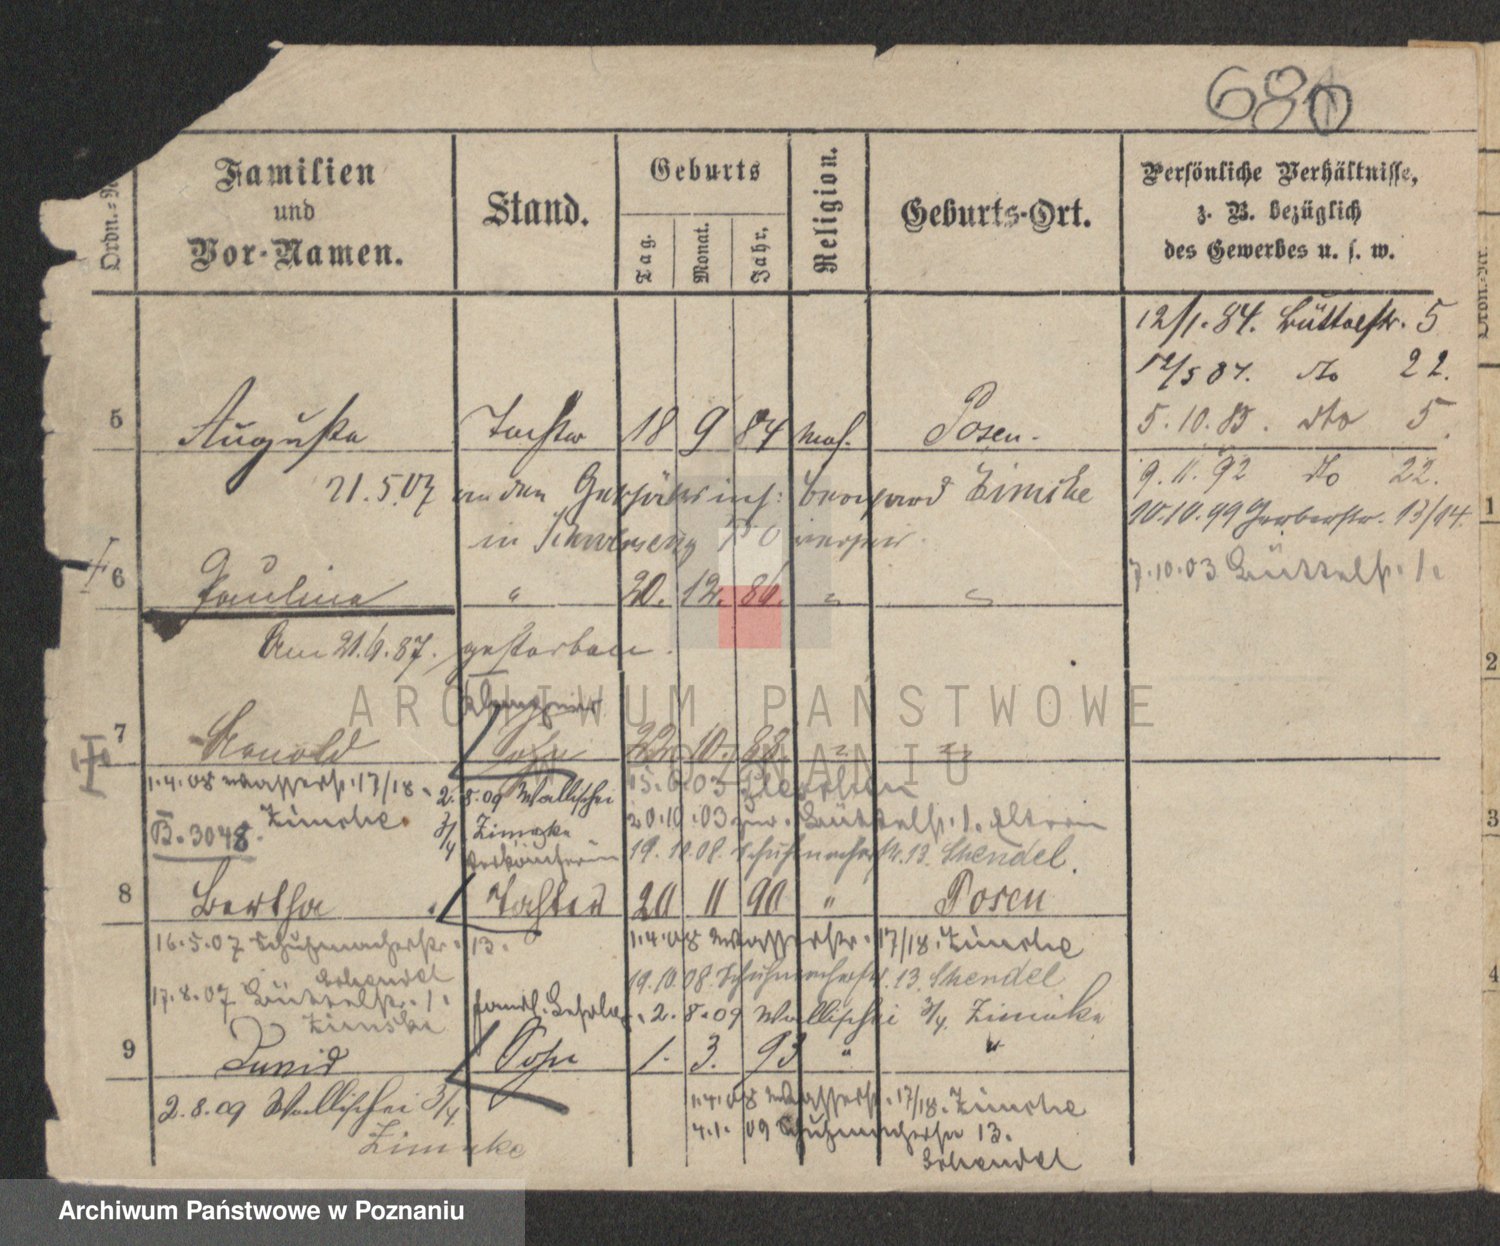 680
Ordn.=N
Familien
und
Vor-Namen.
Stand.
Geburts
Tag.
Monat.
Jahr.
Religion.
Geburts-Ort.
Persönliche Verhältnisse,
z. B. bezüglich
des Gewerbes u. s. w.
12/1. 84. Büttelstr. 5
12/5 87. do 22.
5. 10. 85. dto 5.
9. 11. 92 do 22.
10.10.99 Gerberstr. 13/14.
7.10.03 Büttelstr. 1.
5 Auguste Tochter 18 9 84 mos. Posen.
21.5.07 an den
Zimske
in
6 Pauline " 20. 12. 86. " "
Am 21.6.87. gestorben.
7 Arnold Sohn 22. 10. 88 " "
1.4.08 Wasserstr. 17/18.
Zimske.
B. 3048.
2.8.09 Wallischei
3/4 Zimske
Verkäuferin
15.6.03
20.10.03 zur. Büttelstr. 1. Eltern
19.10.08. Schuhmacherstr. 13. Mendel.
8 Bertha Tochter 20 11 90 " Posen
16.5.07 Schuhmacherstr. 13.
17.8.07 Büttelstr. 1.
Zimske
1.4.08 Wasserstr. 17/18. Zimske
19.10.08. Schuhmacherstr. 13. Mendel
2.8.09 Wallischei 3/4. Zimske
9 David Sohn 1. 3. 93 " "
2.8.09 Wallischei 3/4
Zimske
1.4.08 Wasserstr. 17/18. Zimske
4.1.09 Schuhmacherstr 13.
Ordn.=Nr.
1
2
3
4
ARCHIWUM PAŃSTWOWE
W POZNANIU
Archiwum Państwowe w Poznaniu